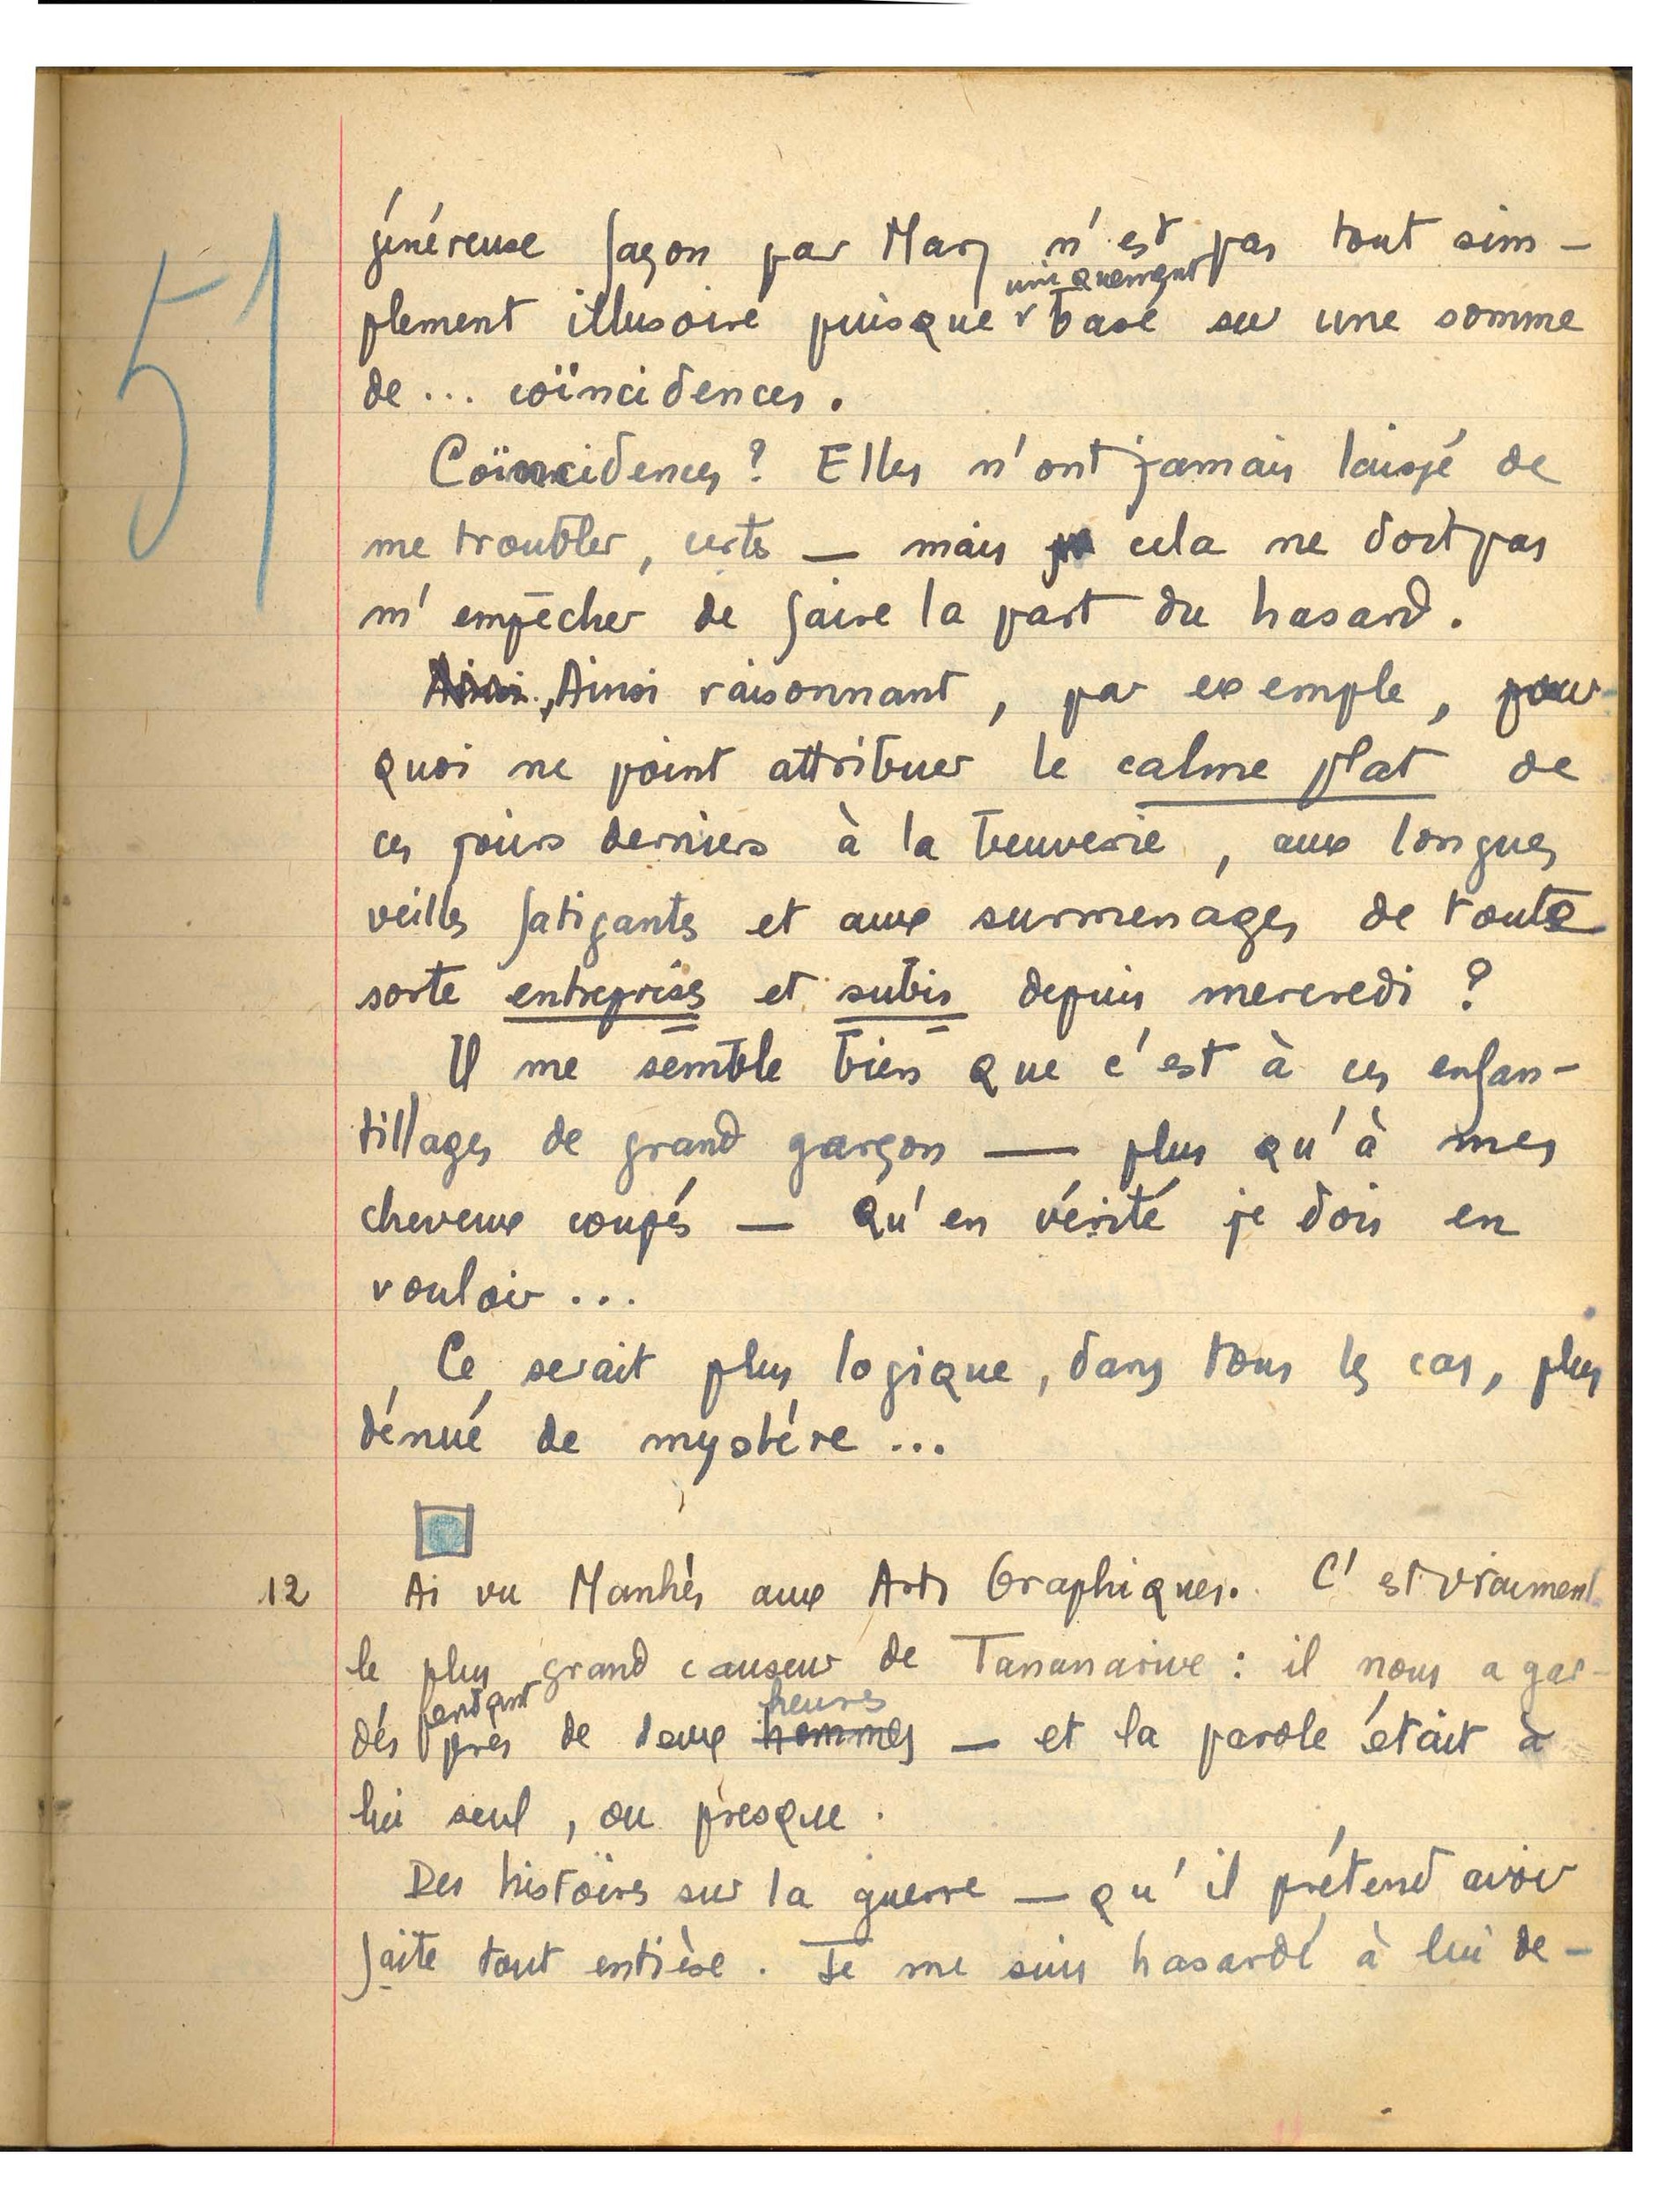 51
généreuse façon par Mary n'est pas tout sim-
uniquement
plement illusoire puisque basé sur une somme
de ... coïncidences.
Coïncidences ? Elles n'ont jamais laissé de
me troubler, certes — mais cela ne doit pas
m'empêcher de faire la part du hasard.
Ainsi raisonnant, par exemple, pour-
quoi ne point attribuer le calme plat de
ces jours derniers à la beuverie, aux longues
veilles fatigantes et aux surmenages de toute
sorte entrepris et subis depuis mercredi ?
Il me semble bien que c'est à ces enfan-
tillages de grand garçon — plus qu'à mes
cheveux coupés — qu'en vérité je dois en
vouloir ...
Ce serait plus logique, dans tous les cas, plus
dénué de mystère ...
12 Ai vu Manhès aux Arts Graphiques. C'est vraiment
le plus grand causeur de Tananarive : il nous a gar-
pendant heures
dés près de deux hommes — et la parole était à
lui seul, ou presque.
Des histoires sur la guerre — qu'il prétend avoir
faite tout entière. Je me suis hasardé à lui de-